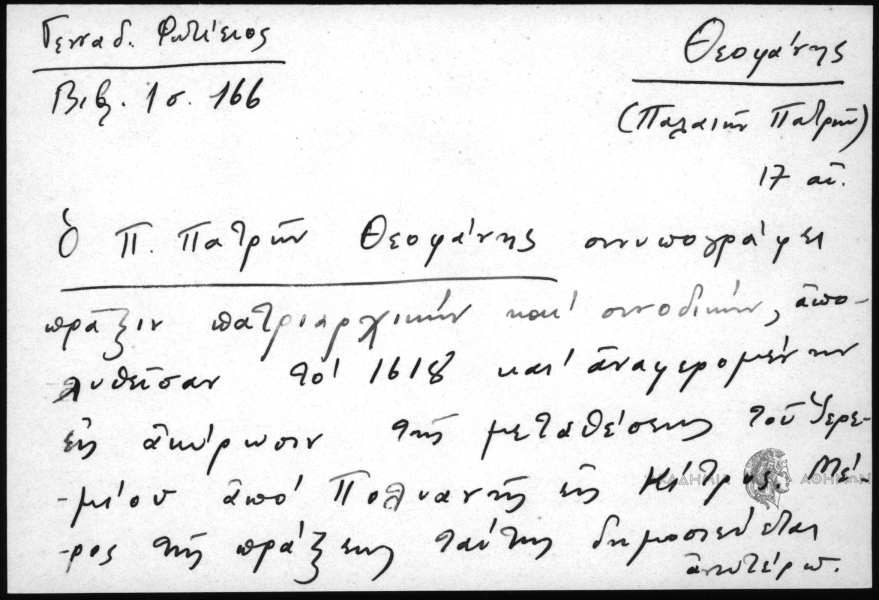 Γενναδ. Φωτίειος
Βιβλ. 1 σ. 166
Θεοφάνης
(Παλαιῶν Πατρῶν)
17 αἰ.
Ὁ Π. Πατρῶν Θεοφάνης συνυπογράφει
πρᾶξιν πατριαρχικήν καί συνοδικήν, ἀπο-
λυθεῖσαν τό 1618 καί ἀναφερομένην
εἰς ἀκύρωσιν τῆς μεταθέσεως τοῦ Ἱερε-
-μίου ἀπό Πολυανῆς εἰς Κίτρος. Μέ-
-ρος τῆς πράξεως ταύτης δημοσιεύεται
ἀνωτέρω.
ΑΚΑΔΗΜΙΑ ΑΘΗΝΩΝ